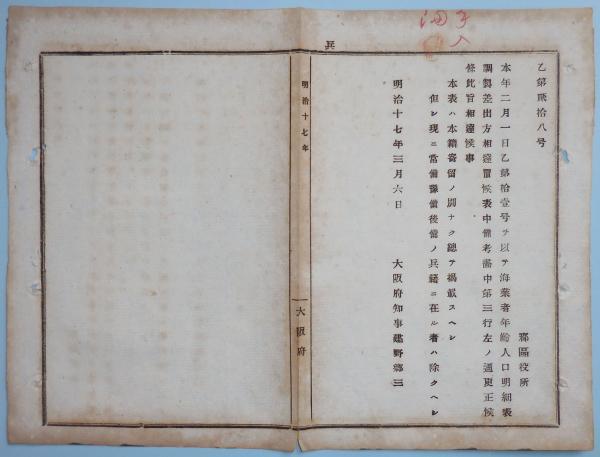 乙第貮拾八号
郡區役所
本年二月一日乙第拾壹号ヲ以テ海業者年齢人口明細表
調製差出方相達置候表中備考欄中第三行左ノ通更正候
條此旨相達候事
本表ハ本籍寄留ノ別ナク總テ揭載スヘシ
但シ現ニ常備豫備後備ノ兵籍ニ在ル者ハ除クヘシ
明治十七年三月六日
大阪府知事建野郷三
兵
明治十七年
大阪府